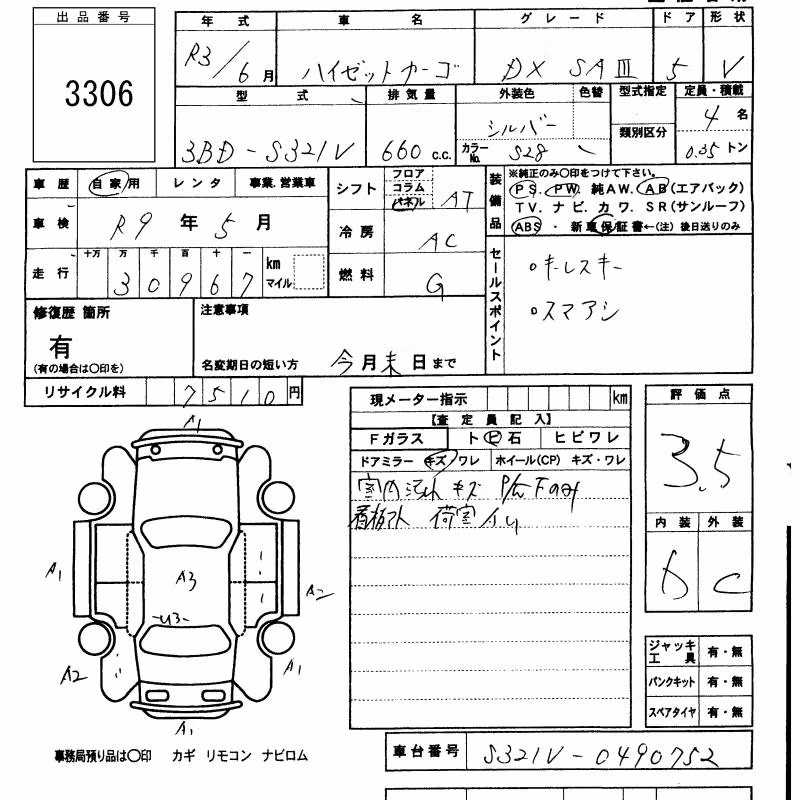 出品番号
3306
年式 車名 グレード ドア 形状
R3/6月 ハイゼットカーゴ DX SAIII 5 V
型式 排気量 外装色 色替 型式指定 定員・積載
3BD-S321V 660 c.c. シルバー 類別区分 4名
カラーNo. S28 0.35トン
車歴 自家用 レンタ 事業.営業車
車検 R9年5月
走行 十万 万 千 百 十 一
30967 km マイル
シフト フロア コラム パネル AT
冷房 AC
燃料 G
装備品
※純正のみ〇印をつけて下さい。
PS. PW. 純AW. AB(エアバック)
TV. ナビ. カワ. SR(サンルーフ)
ABS・新車保証書←(注)後日送りのみ
セールスポイント
・キーレスキー
・スマアシ
修復歴 箇所
有
(有の場合は〇印を)
注意事項
名変期日の短い方 今月末日まで
リサイクル料 7510円
現メーター指示 km
【査定員記入】
Fガラス ト ビ 石 ヒビワレ
ドアミラー キズ/ワレ ホイール(CP) キズ・ワレ
室内汚れ キズ
荷室
評価点
3.5
内装 外装
C
A1
A1
A2
A3
U3
A2
A1
A1
ジャッキ工具 有・無
パンクキット 有・無
スペアタイヤ 有・無
事務局預り品は〇印 カギ リモコン ナビロム
車台番号 S321V-0490752